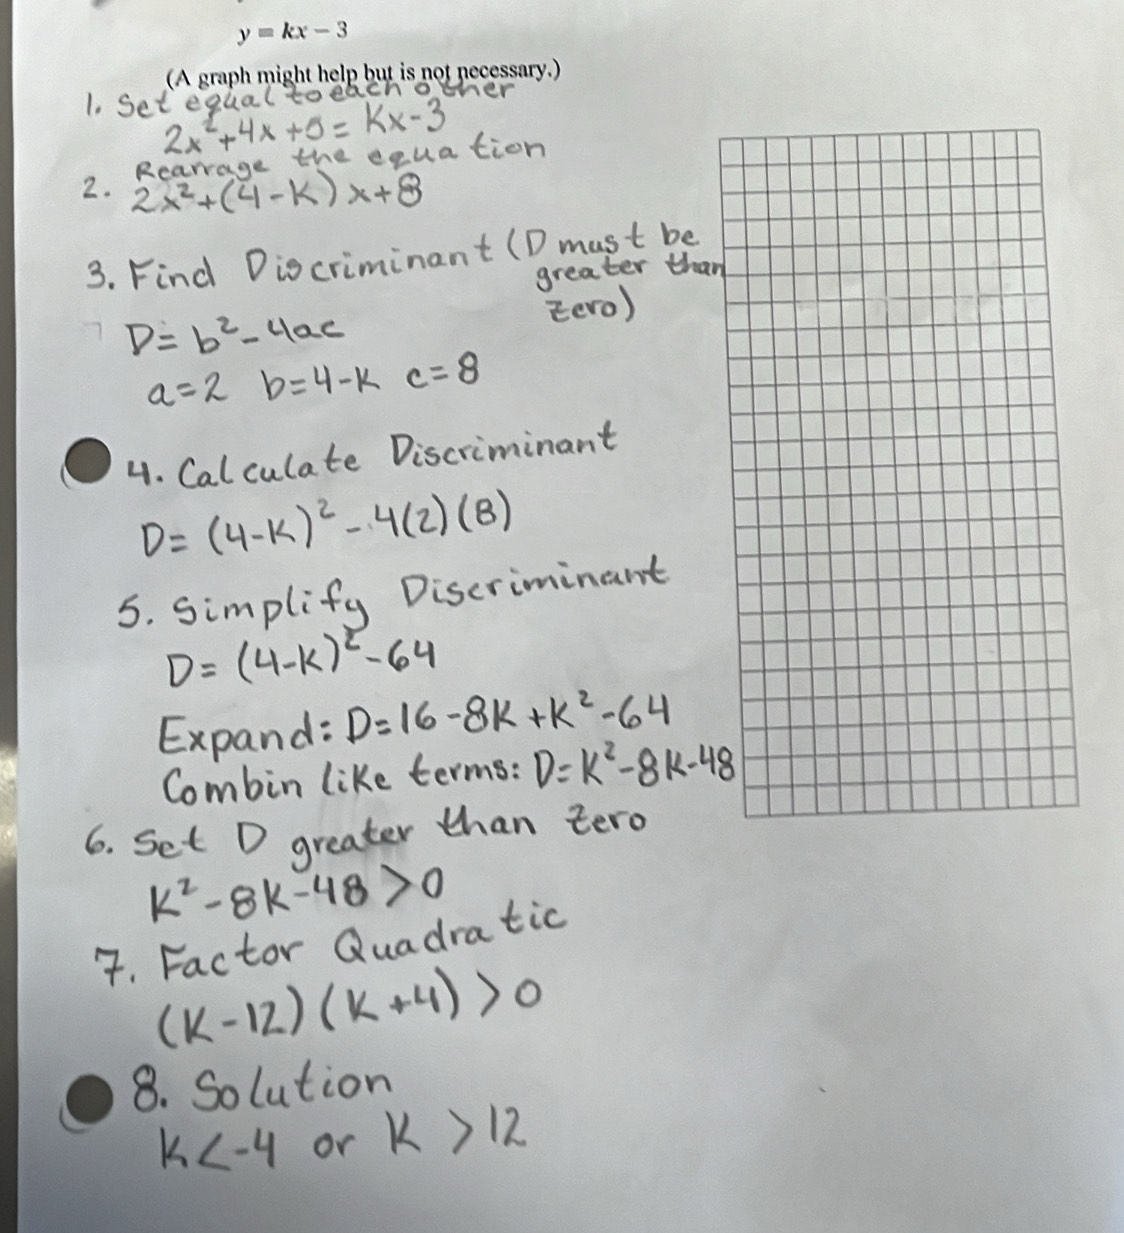 y = kx − 3
(A graph might help but is not necessary.)
1. Set equal to each other
2x²+4x+5=Kx-3
Rearrage the equation
2. 2x²+(4-K)x+8
3. Find Discriminant (D must be
greater than
zero)
D=b²-4ac
a=2 b=4-K c=8
4. Calculate Discriminant
D=(4-K)²-4(2)(8)
5. Simplify Discriminant
D=(4-K)²-64
Expand: D=16-8K+K²-64
Combin like terms: D=K²-8K-48
6. Set D greater than zero
K²-8K-48>0
7. Factor Quadratic
(K-12)(K+4)>0
8. Solution
K<-4 or K>12